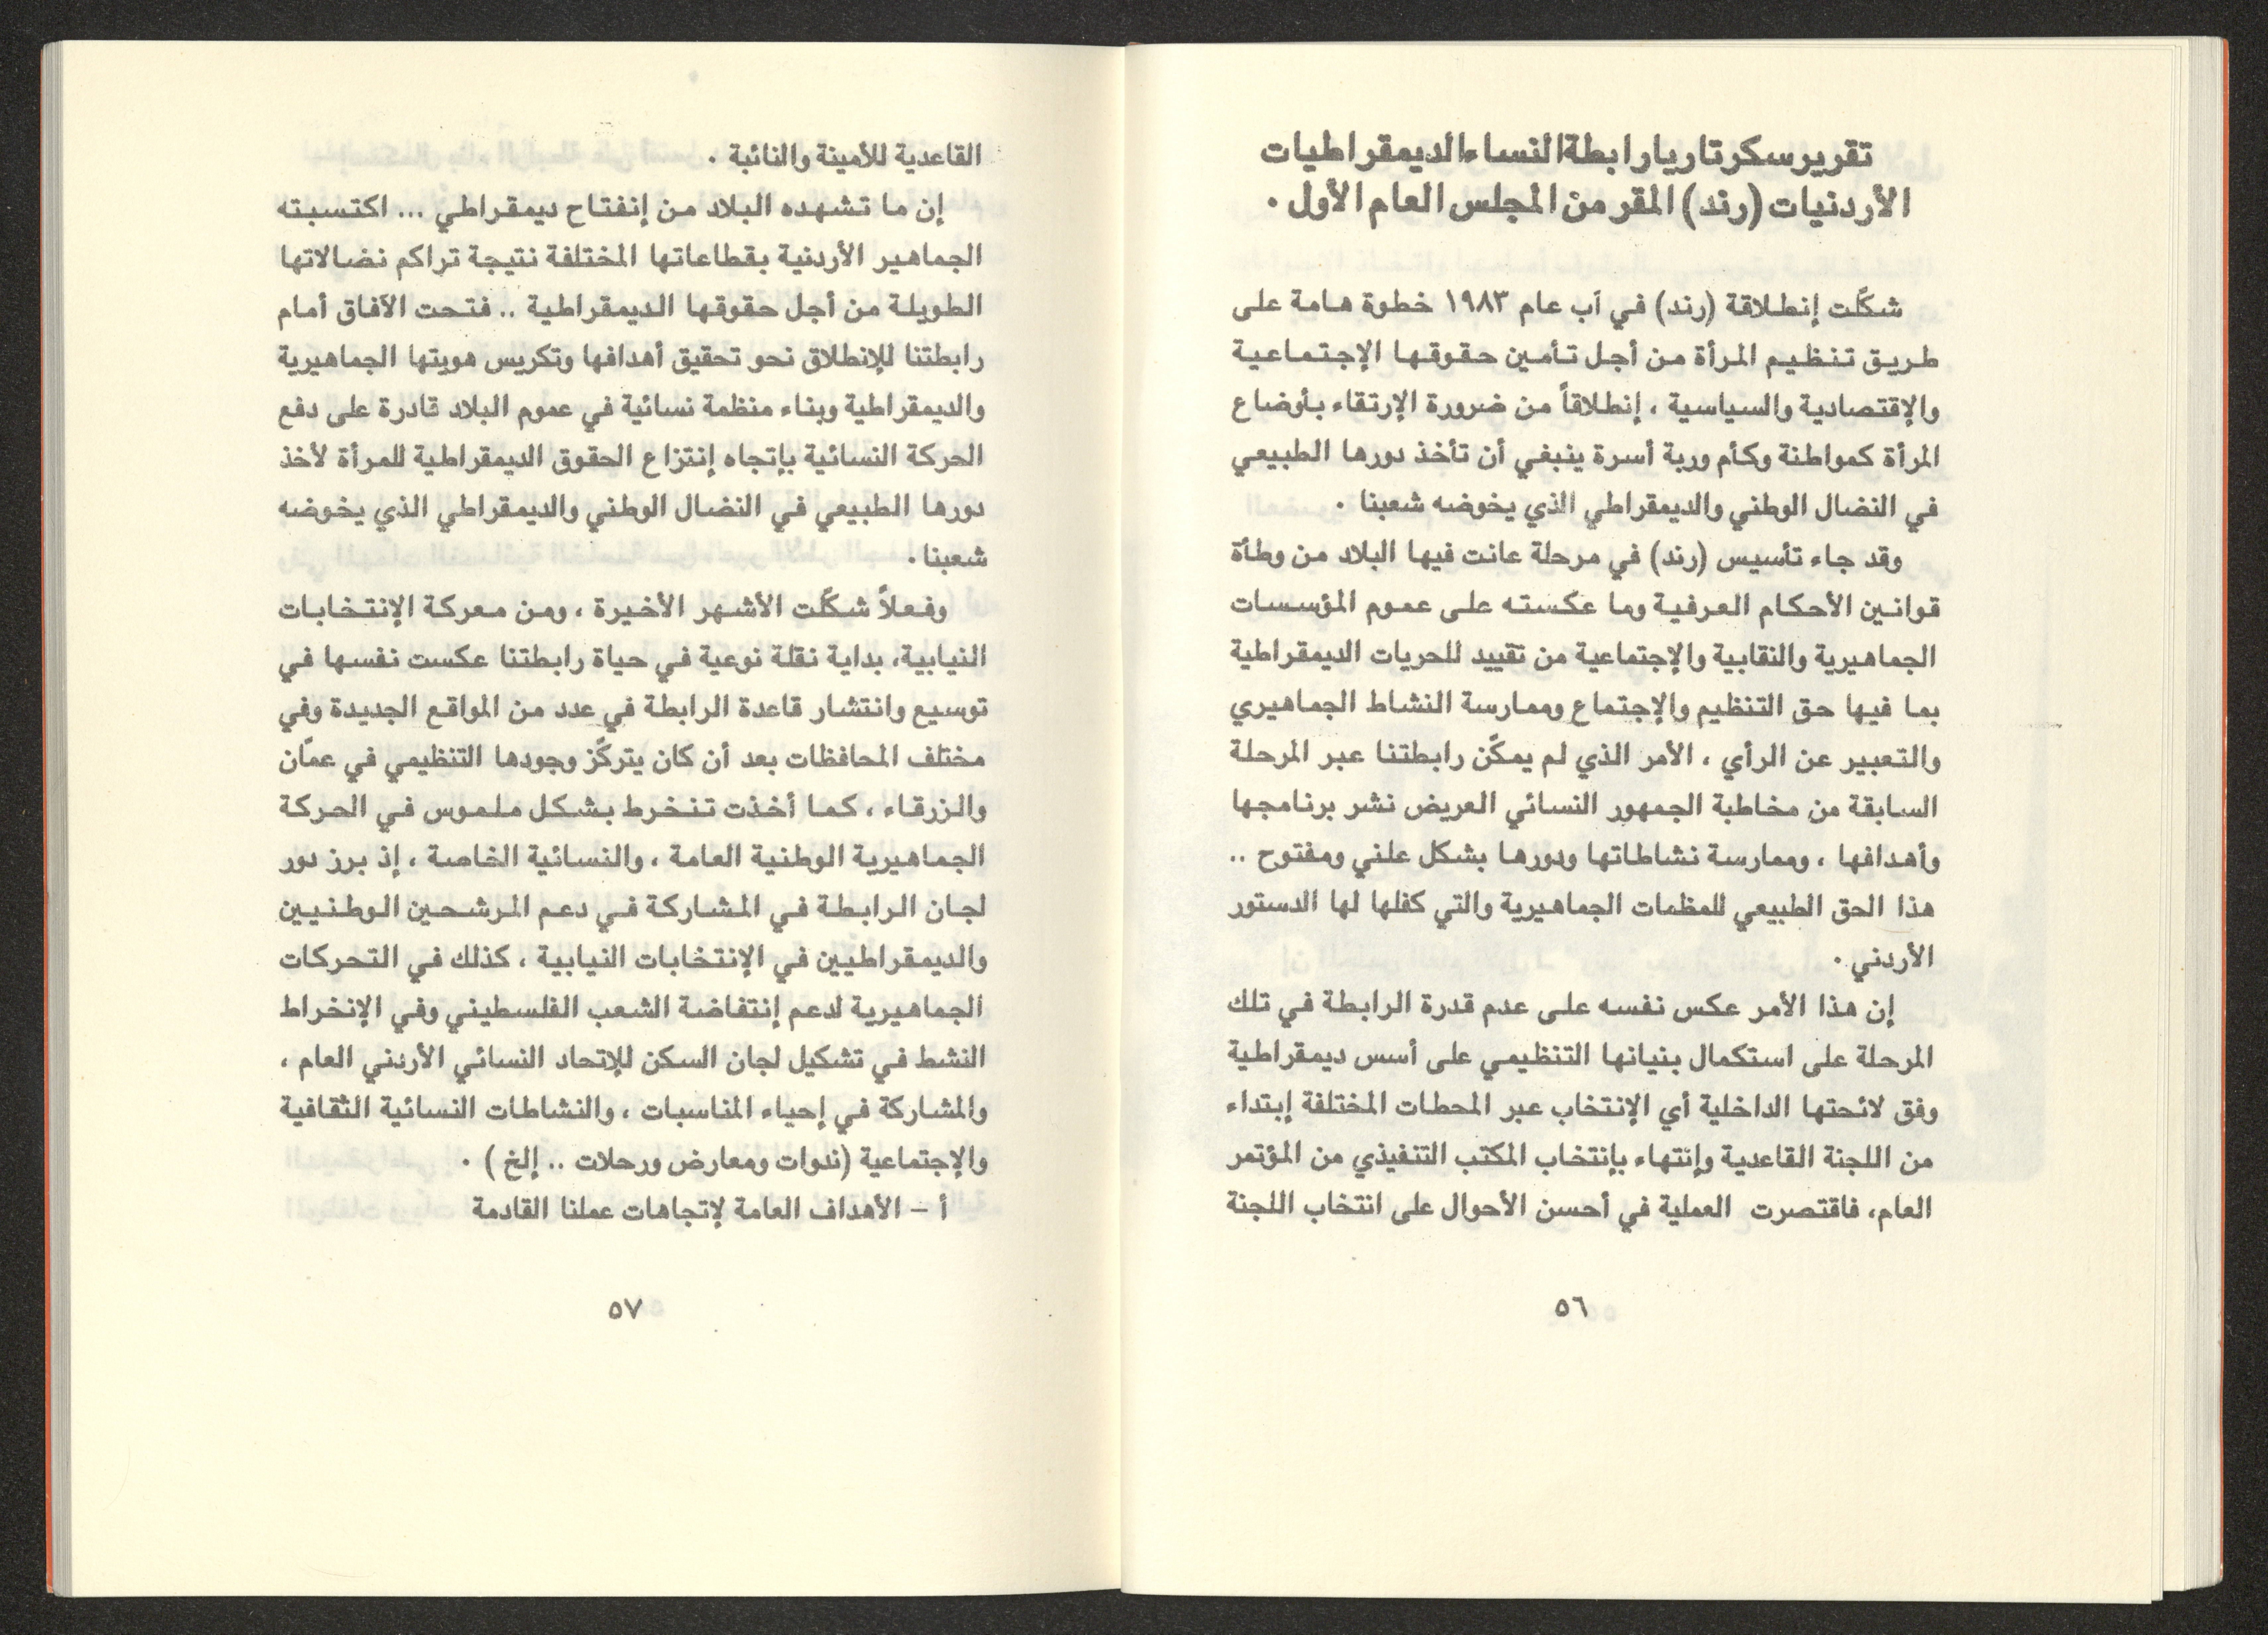 تقرير سكرتاريا رابطة النساء الديمقراطيات
الأردنيات (رند) المقر من المجلس العام الأول .
شكّلت إنطلاقة (رند) في آب عام ١٩٨٣ خطوة هامة على
طريق تنظيم المرأة من أجل تأمين حقوقها الإجتماعية
والإقتصادية والسياسية ، إنطلاقاً من ضرورة الإرتقاء بأوضاع
المرأة كمواطنة وكأم وربة أسرة ينبغي أن تأخذ دورها الطبيعي
في النضال الوطني والديمقراطي الذي يخوضه شعبنا .
وقد جاء تأسيس (رند) في مرحلة عانت فيها البلاد من وطأة
قوانين الأحكام العرفية وما عكسته على عموم المؤسسات
الجماهيرية والنقابية والإجتماعية من تقييد للحريات الديمقراطية
بما فيها حق التنظيم والإجتماع وممارسة النشاط الجماهيري
والتعبير عن الرأي ، الأمر الذي لم يمكّن رابطتنا عبر المرحلة
السابقة من مخاطبة الجمهور النسائي العريض نشر برنامجها
وأهدافها ، وممارسة نشاطاتها ودورها بشكل علني ومفتوح ..
هذا الحق الطبيعي للمظمات الجماهيرية والتي كفلها لها الدستور
الأردني .
إن هذا الأمر عكس نفسه على عدم قدرة الرابطة في تلك
المرحلة على استكمال بنيانها التنظيمي على أسس ديمقراطية
وفق لائحتها الداخلية أي الإنتخاب عبر المحطات المختلفة إبتداء
من اللجنة القاعدية وإنتهاء بإنتخاب المكتب التنفيذي من المؤتمر
العام، فاقتصرت العملية في أحسن الأحوال على انتخاب اللجنة
٥٦
القاعدية للأمينة والنائبة .
إن ما تشهده البلاد من إنفتاح ديمقراطي ... اكتسبته
الجماهير الأردنية بقطاعاتها المختلفة نتيجة تراكم نضالاتها
الطويلة من أجل حقوقها الديمقراطية .. فتحت الآفاق أمام
رابطتنا للإنطلاق نحو تحقيق أهدافها وتكريس هويتها الجماهيرية
والديمقراطية وبناء منظمة نسائية في عموم البلاد قادرة على دفع
الحركة النسائية بإتجاه إنتزاع الحقوق الديمقراطية للمرأة لأخذ
دورها الطبيعي في النضال الوطني والديمقراطي الذي يخوضه
شعبنا .
وفعلاً شكّلت الأشهر الأخيرة ، ومن معركة الإنتخابات
النيابية، بداية نقلة نوعية في حياة رابطتنا عكست نفسها في
توسيع وانتشار قاعدة الرابطة في عدد من المواقع الجديدة وفي
مختلف المحافظات بعد أن كان يتركّز وجودها التنظيمي في عمّان
والزرقاء ، كما أخذت تنخرط بشكل ملموس في الحركة
الجماهيرية الوطنية العامة ، والنسائية الخاصة ، إذ برز دور
لجان الرابطة في المشاركة في دعم المرشحين الوطنيين
والديمقراطيين في الإنتخابات النيابية ، كذلك في التحركات
الجماهيرية لدعم إنتفاضة الشعب الفلسطيني وفي الإنخراط
النشط في تشكيل لجان السكن للإتحاد النسائي الأردني العام ،
والمشاركة في إحياء المناسبات ، والنشاطات النسائية الثقافية
والإجتماعية (ندوات ومعارض ورحلات .. إلخ ) .
أ – الأهداف العامة لإتجاهات عملنا القادمة
٥٧